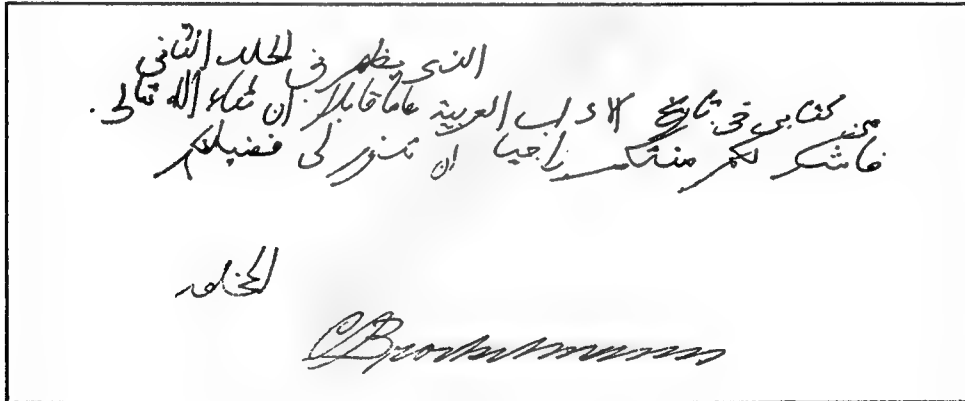 الذى يظهر فى الجلد الثانى
من كتابى فى تاريخ الاداب العربية عاما قابلا ان شاء الله تعالى.
فاشكر لكم منتكم راجيا ان تدوم لى فضيلتكم
المخلص
C Brockelmann